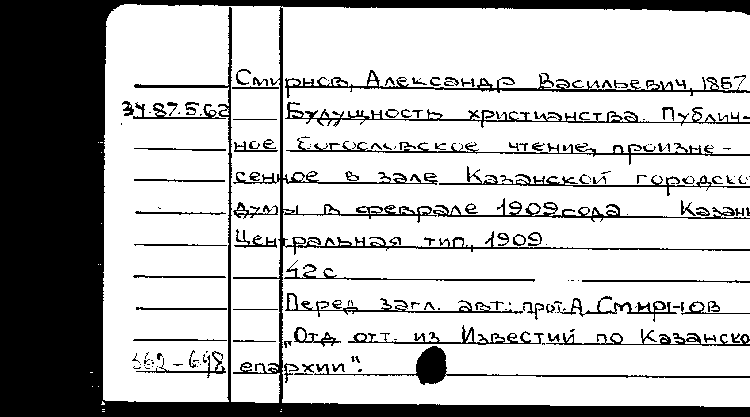 Смирнов, Александр Васильевич, 1857
34.87.5.62 Будущность христианства. Публич-
ное богословское чтение, произне-
сенное в зале Казанской городско
думы в феврале 1909 года Казань
Центральная тип, 1909
42 с
Перед загл. авт.: прот. А. Смирнов
„Отд отт. из Известий по Казанско
362-698 епархии".